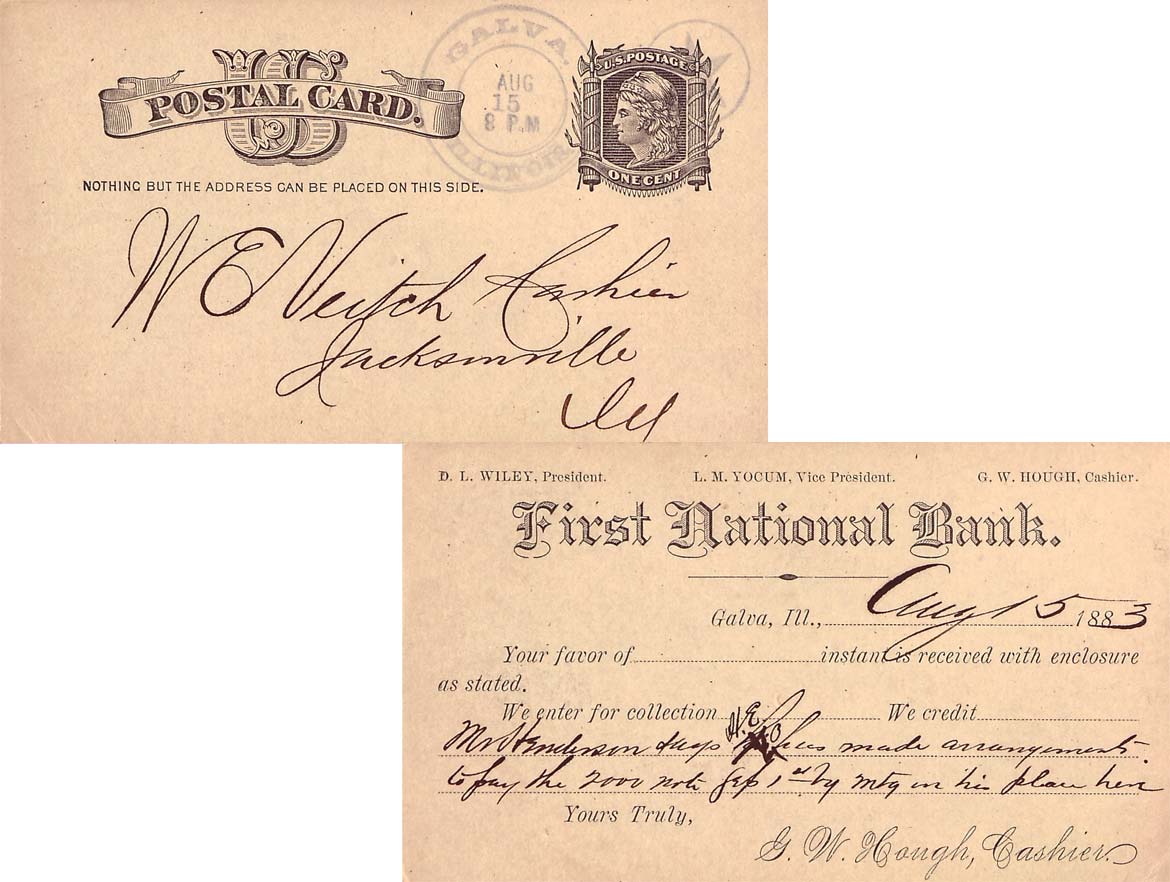 US
POSTAL CARD.
NOTHING BUT THE ADDRESS CAN BE PLACED ON THIS SIDE.
GALVA.
AUG
15
8 P.M
ILLINOIS
U.S. POSTAGE
ONE CENT
W E Veitch Cashier
Jacksonville
Ill
D. L. WILEY, President. L. M. YOCUM, Vice President. G. W. HOUGH, Cashier.
First National Bank.
Galva, Ill., Aug 15 1883
Your favor of instant is received with enclosure
as stated.
We enter for collection We credit
H.E.
Mr Henderson says has made arrangements
to pay the 2000 note Sep 1st by mtg on his place here
Yours Truly,
G. W. Hough, Cashier.